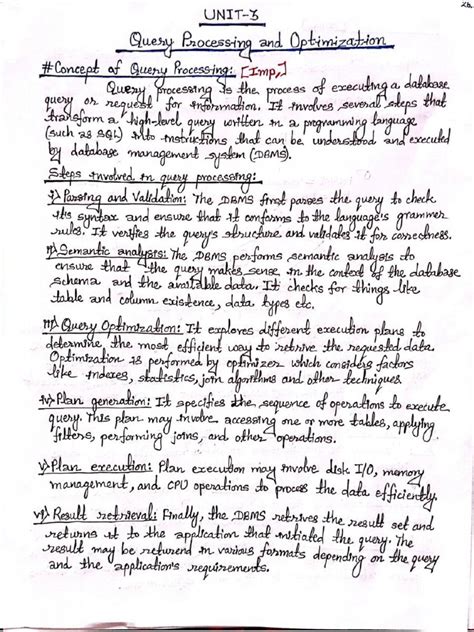 UNIT-3
Query Processing and Optimization
# Concept of Query Processing: [Imp.]
Query processing is the process of executing a database
query or request for information. It involves several steps that
transform a high-level query written in a programming language
(such as SQL) into instructions that can be understood and executed
by database management system (DBMS).
Steps involved in query processing:
i) Parsing and Validation: The DBMS first parses the query to check
its syntax and ensure that it conforms to the language's grammer
rules. It verifies the query's structure and validates it for correctness.
ii) Semantic analysis: The DBMS performs semantic analysis to
ensure that the query makes sense in the context of the database
schema and the available data. It checks for things like
table and column existence, data types etc.
iii) Query Optimization: It explores different execution plans to
determine the most efficient way to retrive the requested data.
Optimization is performed by optimizer which considers factors
like indexes, statistics, join algorithms and other techniques.
iv) Plan generation: It specifies the sequence of operations to execute
query. This plan may involve accessing one or more tables, applying
filters, performing joins, and other operations.
v) Plan execution: Plan execution may involve disk I/O, memory
management, and CPU operations to process the data efficiently.
vi) Result retrieval: Finally, the DBMS retrives the result set and
returns it to the application that initiated the query. The
result may be returend in various formats depending on the query
and the application's requirements.